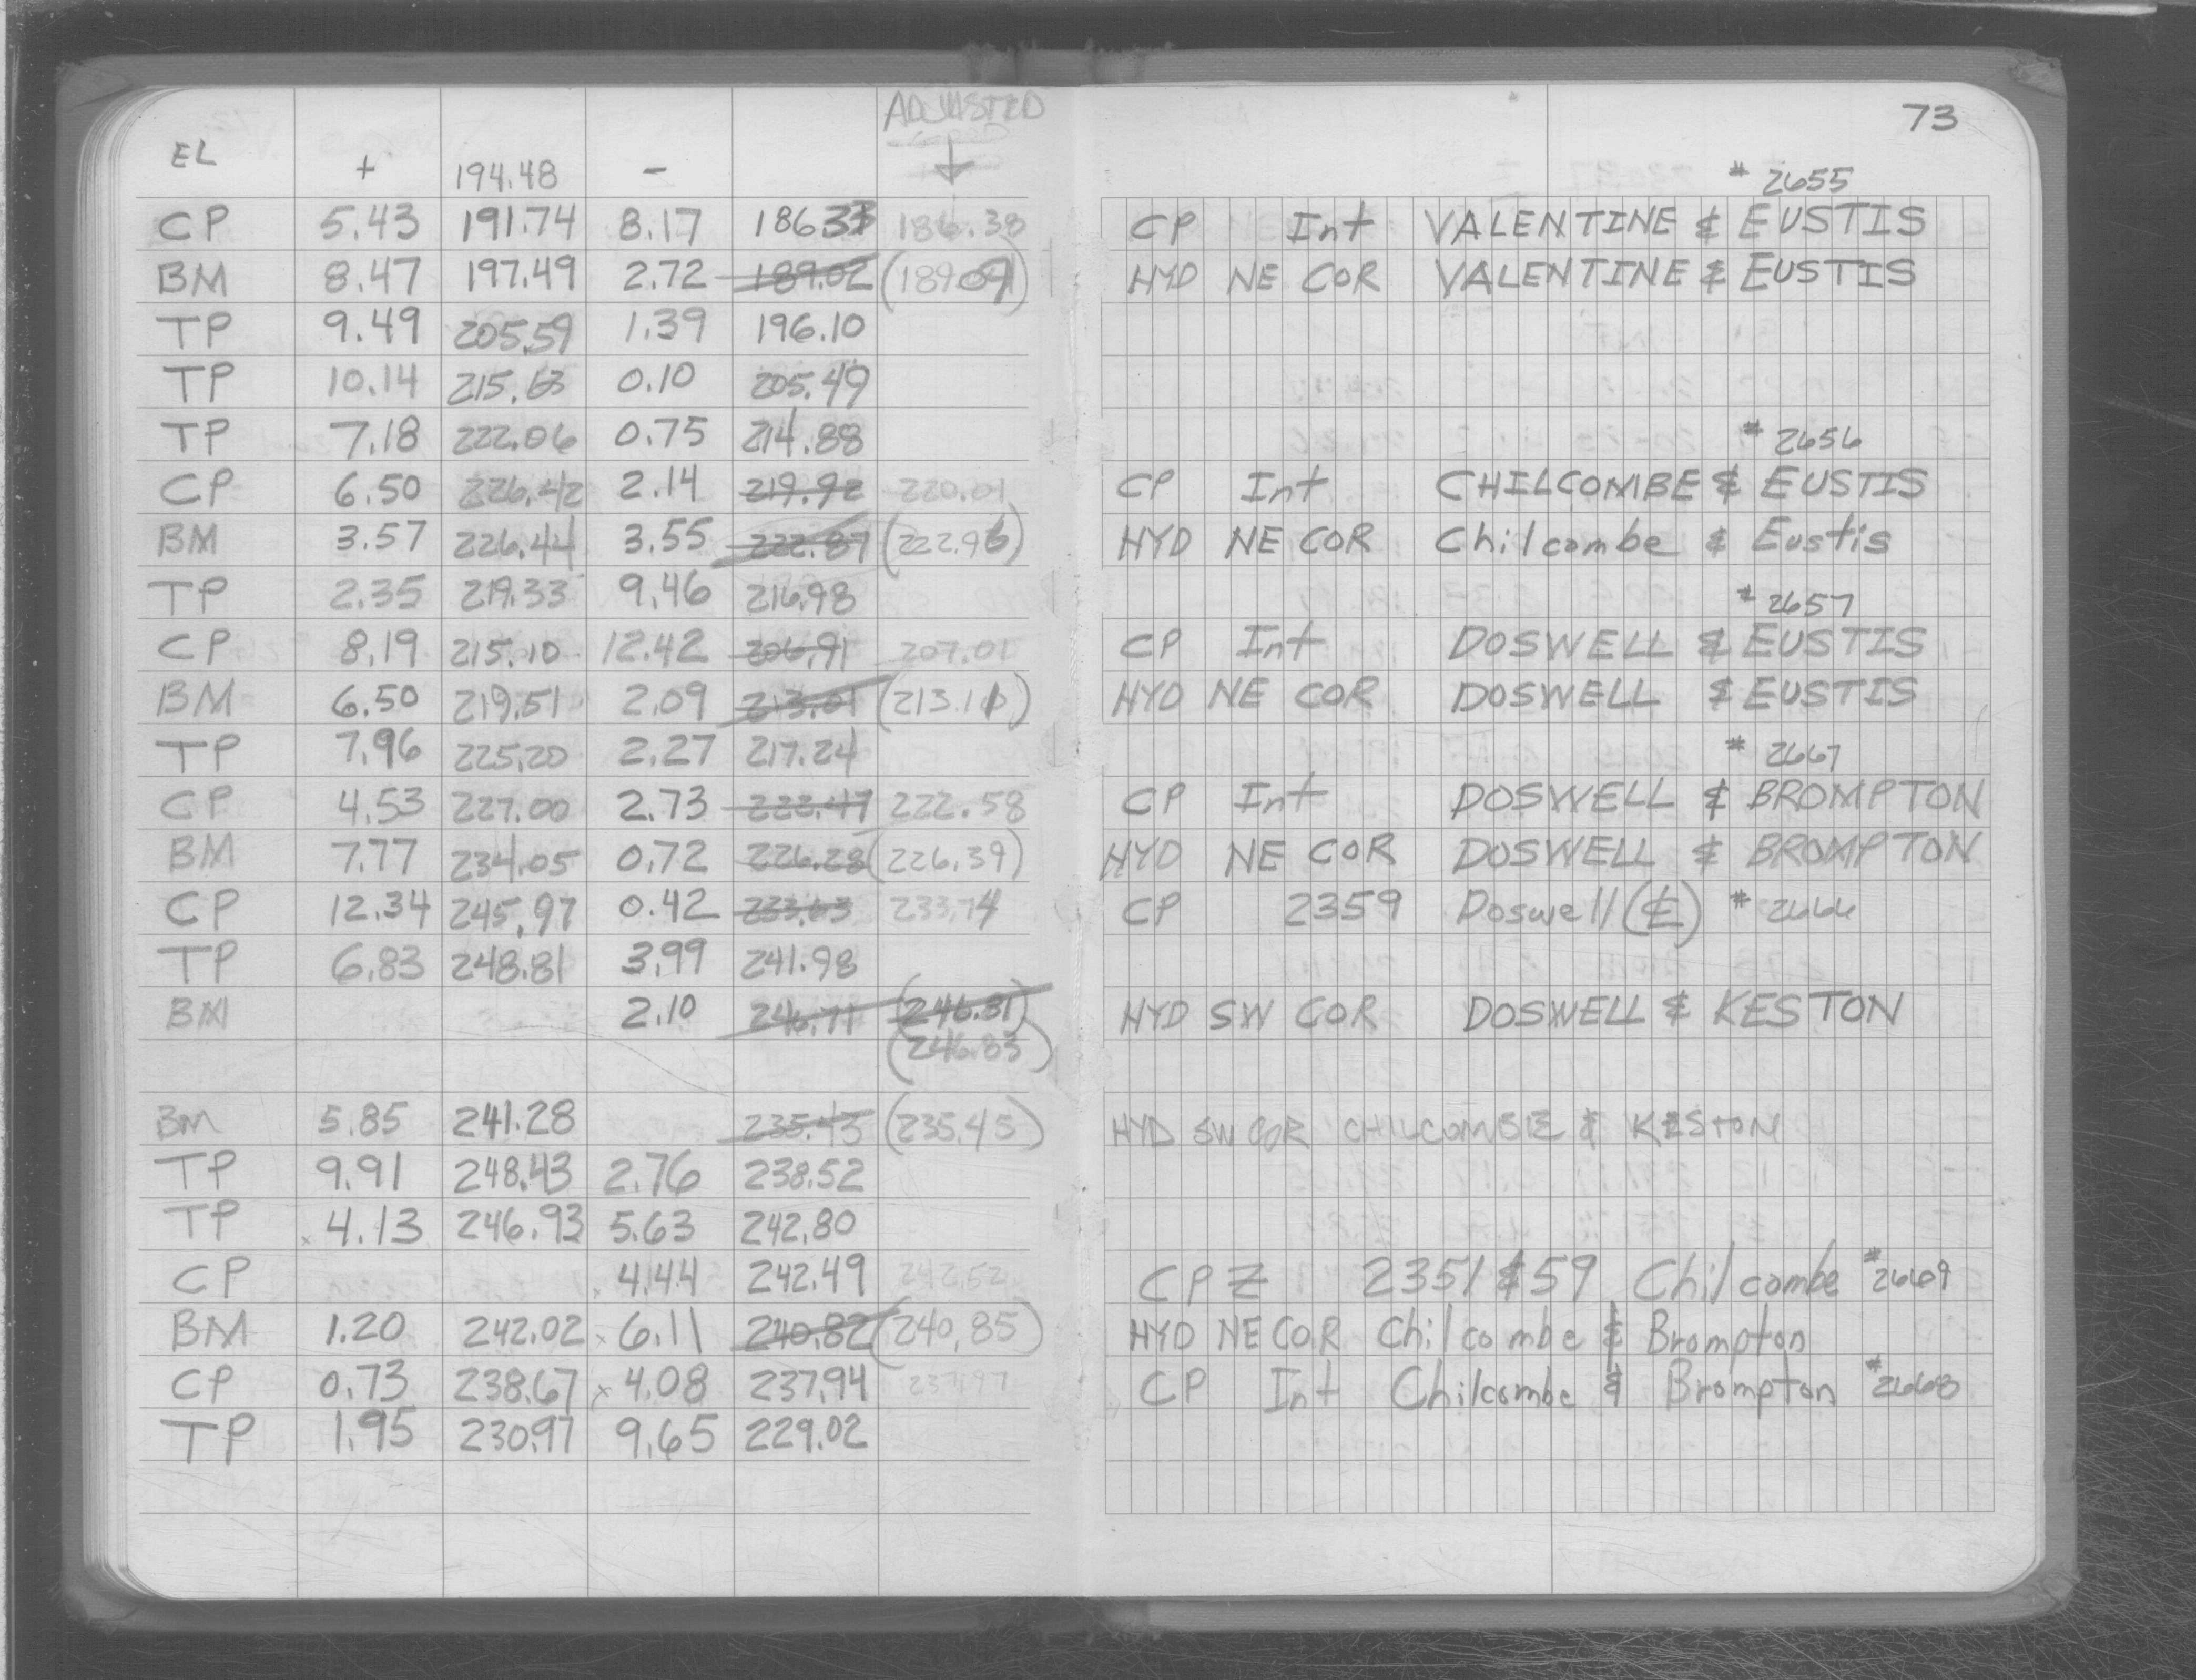 ADJUSTED
EL + 194.48 -
CP 5.43 191.74 8.17 186.31 186.38
BM 8.47 197.49 2.72 189.02 (189.09)
TP 9.49 205.59 1.39 196.10
TP 10.14 215.63 0.10 205.49
TP 7.18 222.06 0.75 214.88
CP 6.50 226.42 2.14 219.92 220.01
BM 3.57 226.44 3.55 222.87 (222.96)
TP 2.35 219.33 9.46 216.98
CP 8.19 215.10 12.42 206.91 207.01
BM 6.50 219.51 2.09 213.01 (213.11)
TP 7.96 225.20 2.27 217.24
CP 4.53 227.00 2.73 222.47 222.58
BM 7.77 234.05 0.72 226.28 (226.39)
CP 12.34 245.97 0.42 233.63 233.74
TP 6.83 248.81 3.99 241.98
BM 2.10 246.71 (246.81)
(246.83)
BM 5.85 241.28 235.43 (235.45)
TP 9.91 248.43 2.76 238.52
TP 4.13 246.93 5.63 242.80
CP 4.44 242.49 242.52
BM 1.20 242.02 6.11 240.82 (240.85)
CP 0.73 238.67 4.08 237.94 237.97
TP 1.95 230.97 9.65 229.02
73
# 2655
CP Int VALENTINE & EUSTIS
HYD NE COR VALENTINE & EUSTIS
# 2656
CP Int CHILCOMBE & EUSTIS
HYD NE COR Chilcombe & Eustis
# 2657
CP Int DOSWELL & EUSTIS
HYD NE COR DOSWELL & EUSTIS
# 2667
CP Int DOSWELL & BROMPTON
HYD NE COR DOSWELL & BROMPTON
CP 2359 Doswell (℄) # 2666
HYD SW COR DOSWELL & KESTON
HYD SW COR CHILCOMBE & KESTON
CP 2351 & 59 Chilcombe # 2669
HYD NE COR Chilcombe & Brompton
CP Int Chilcombe & Brompton # 2668